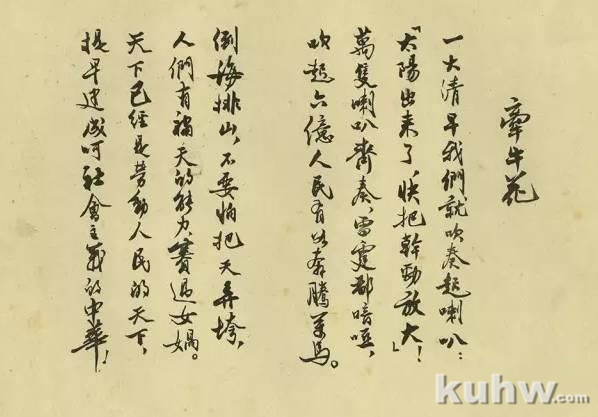 牽牛花
一大清早我們就吹奏起喇叭：
「太陽出來了，快把幹勁放大」！
萬隻喇叭齊奏，雷霆都喑啞，
吹起六億人民有如奔騰萬馬。
倒海排山，不要怕把天弄垮，
人們有補天的能力，賽過女媧。
天下已經是勞動人民的天下，
提早建成呵社會主義的中華！
kuhw.com